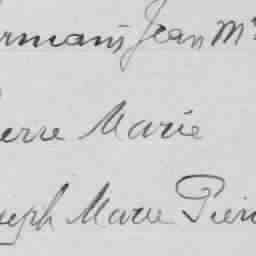 ermain Jean M
ierre Marie
seph Marie Pierr